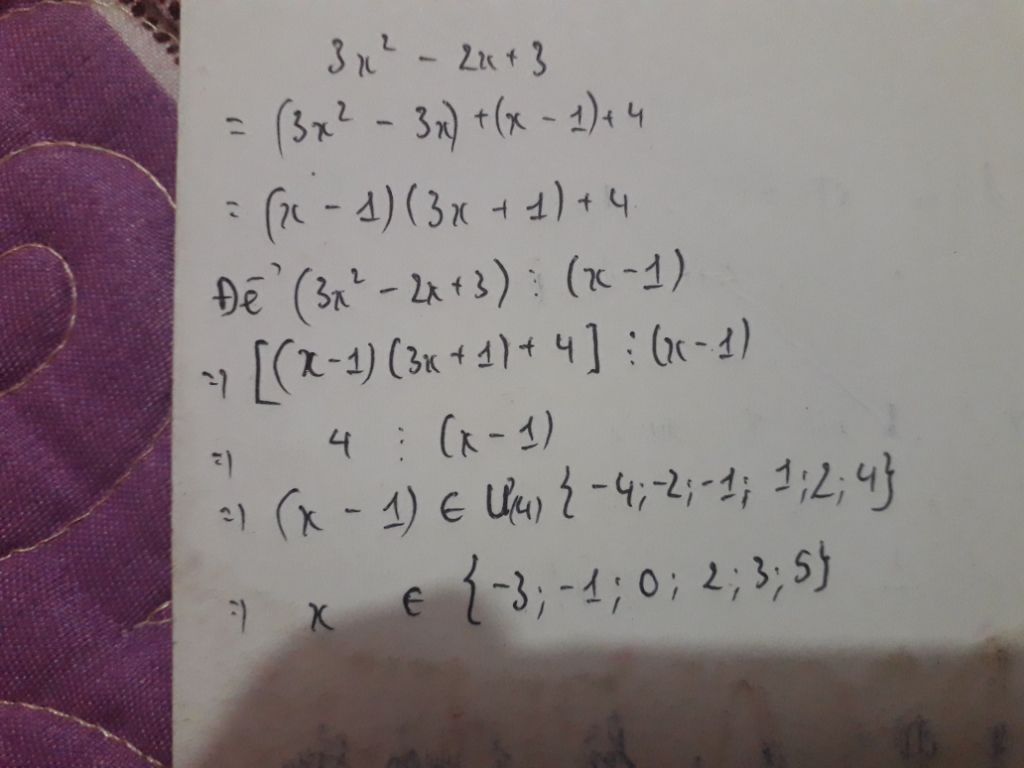 3x² - 2x + 3
= (3x² - 3x) + (x - 1) + 4
= (x - 1)(3x + 1) + 4
Để (3x² - 2x + 3) ⋮ (x - 1)
=) [(x - 1)(3x + 1) + 4] ⋮ (x - 1)
=) 4 ⋮ (x - 1)
=) (x - 1) ∈ Ư(4) {-4; -2; -1; 1; 2; 4}
=) x ∈ {-3; -1; 0; 2; 3; 5}